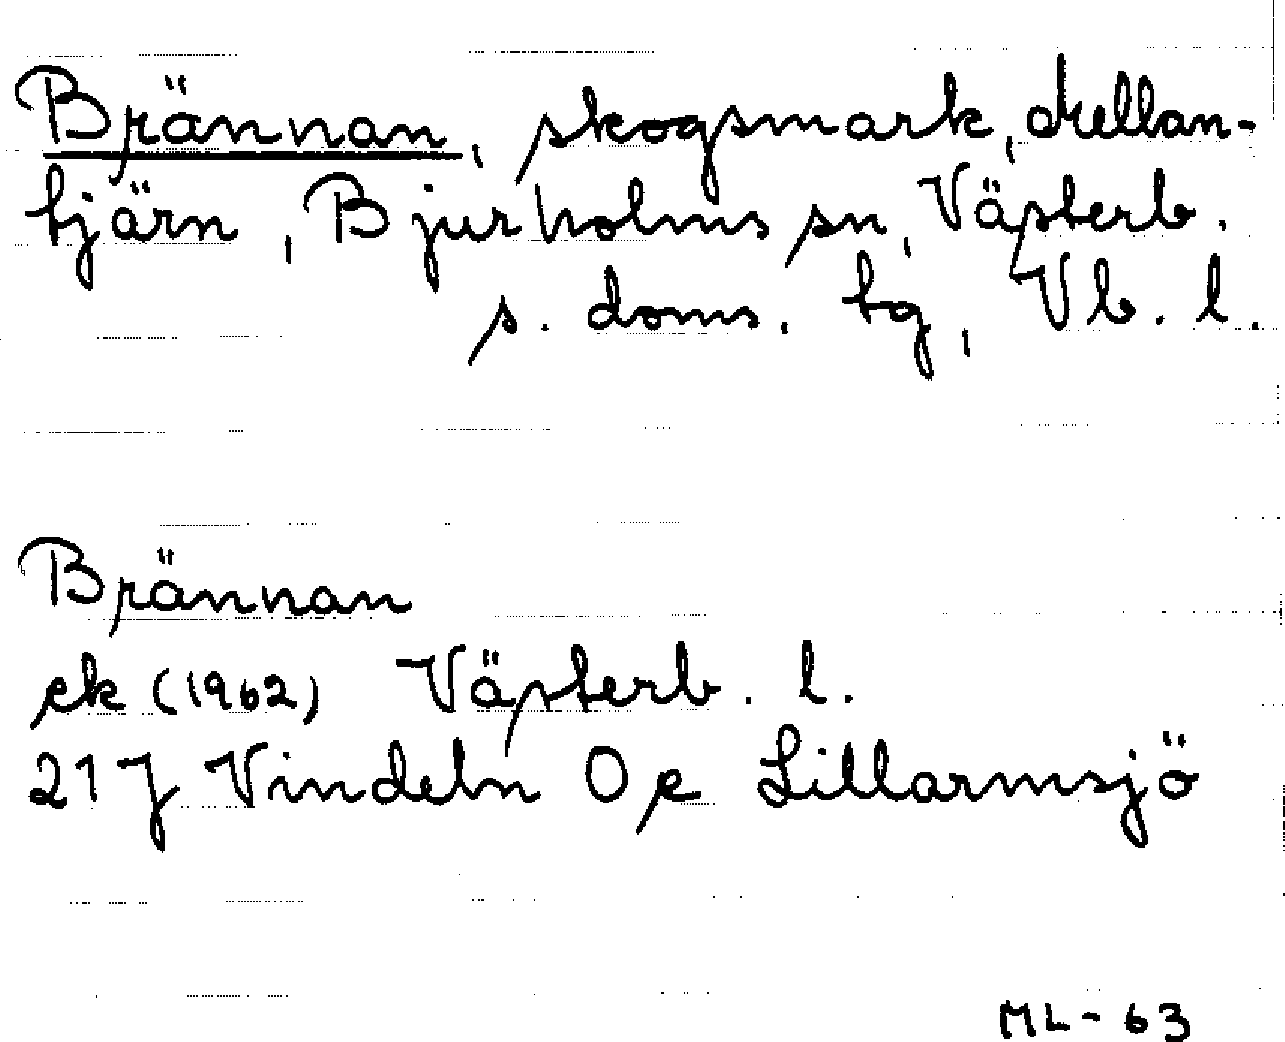 Brännan, skogsmark, Mellan-
tjärn, Bjurholms sn, Västerb.
s. doms. tg, Vb. l.
Brännan
ek (1962) Västerb. l.
21 J Vindeln 0 e Lillarmsjö
ML-63